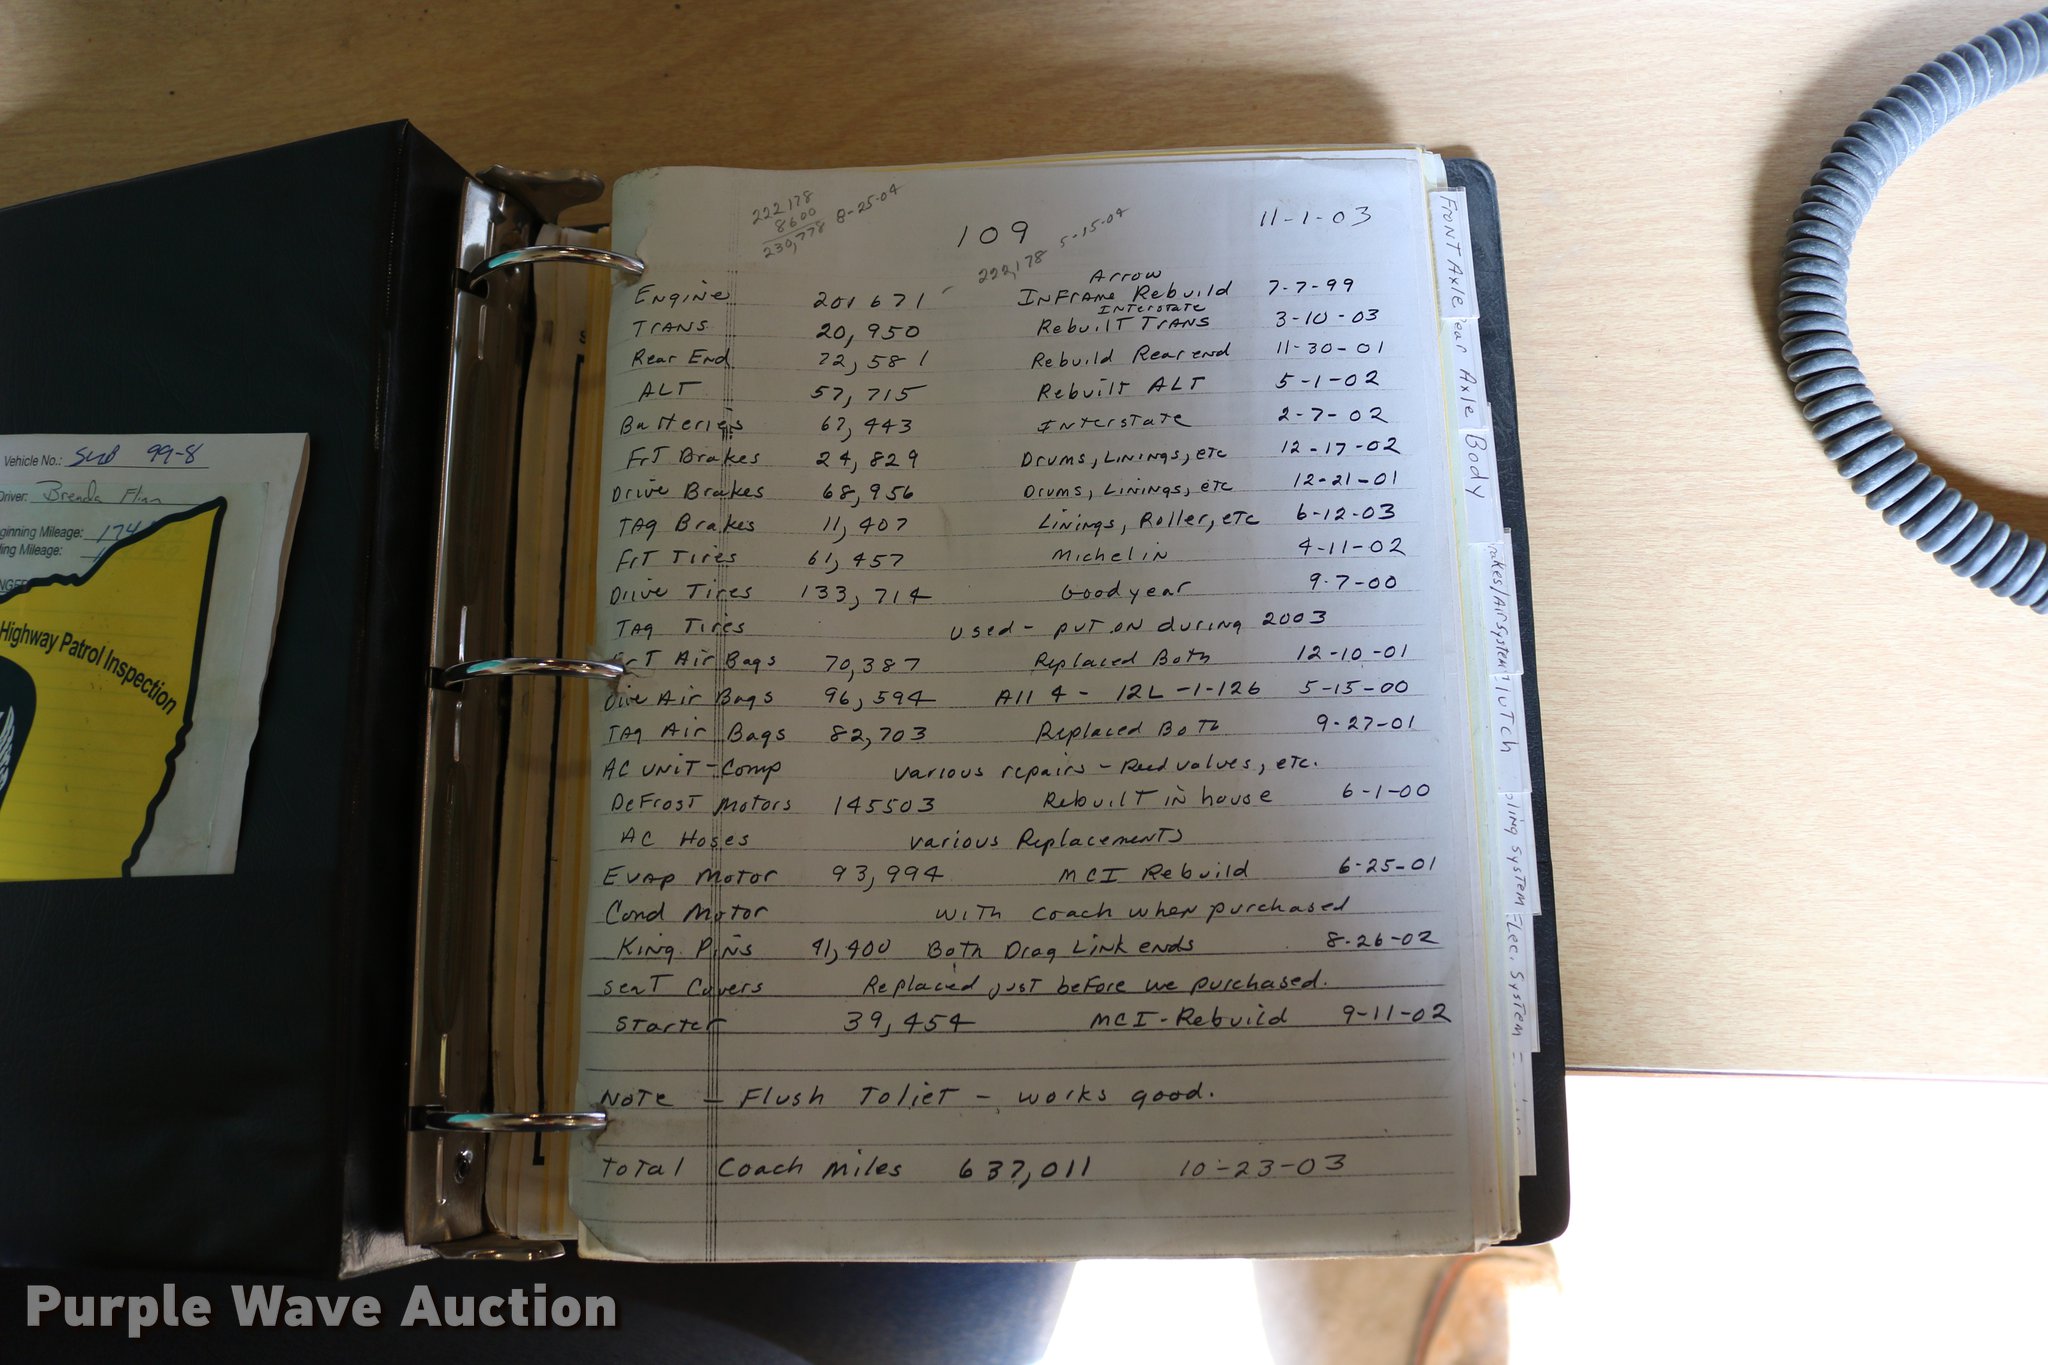 222178
8600
230,778 8-25-04
109
222,178 5-15-04
11-1-03
Arrow
Engine 201671 InFrame Rebuild 7-7-99
Interstate
Trans 20,950 Rebuilt Trans 3-10-03
Rear End 72,581 Rebuild Rear end 11-30-01
ALT 57,715 Rebuilt ALT 5-1-02
Batteries 67,443 Interstate 2-7-02
Frt Brakes 24,829 Drums, Linings, etc 12-17-02
Drive Brakes 68,956 Drums, Linings, etc 12-21-01
Tag Brakes 11,407 Linings, Roller, etc 6-12-03
Frt Tires 61,457 Michelin 4-11-02
Drive Tires 133,714 Goodyear 9-7-00
Tag Tires Used - put on during 2003
Frt Air Bags 70,387 Replaced Both 12-10-01
Dive Air Bags 96,594 All 4 - 12L-1-126 5-15-00
Tag Air Bags 82,703 Replaced Both 9-27-01
AC unit-Comp various repairs - Reed valves, etc.
DeFrost Motors 145503 Rebuilt in house 6-1-00
AC Hoses various Replacements
Evap Motor 93,994 MCI Rebuild 6-25-01
Cond Motor with coach when purchased
King Pins 41,400 Both Drag Link ends 8-26-02
Seat Covers Replaced just before we purchased.
Starter 39,454 MCI-Rebuild 9-11-02
Note - Flush Toliet - works good.
Total Coach Miles 637,011 10-23-03
Front Axle
ear Axle
Body
rakes/Air System
lutch
oling System
Elec. System
Vehicle No.: SUB 99-8
Driver: Brenda Flinn
ginning Mileage: 174
ing Mileage:
Highway Patrol Inspection
Purple Wave Auction